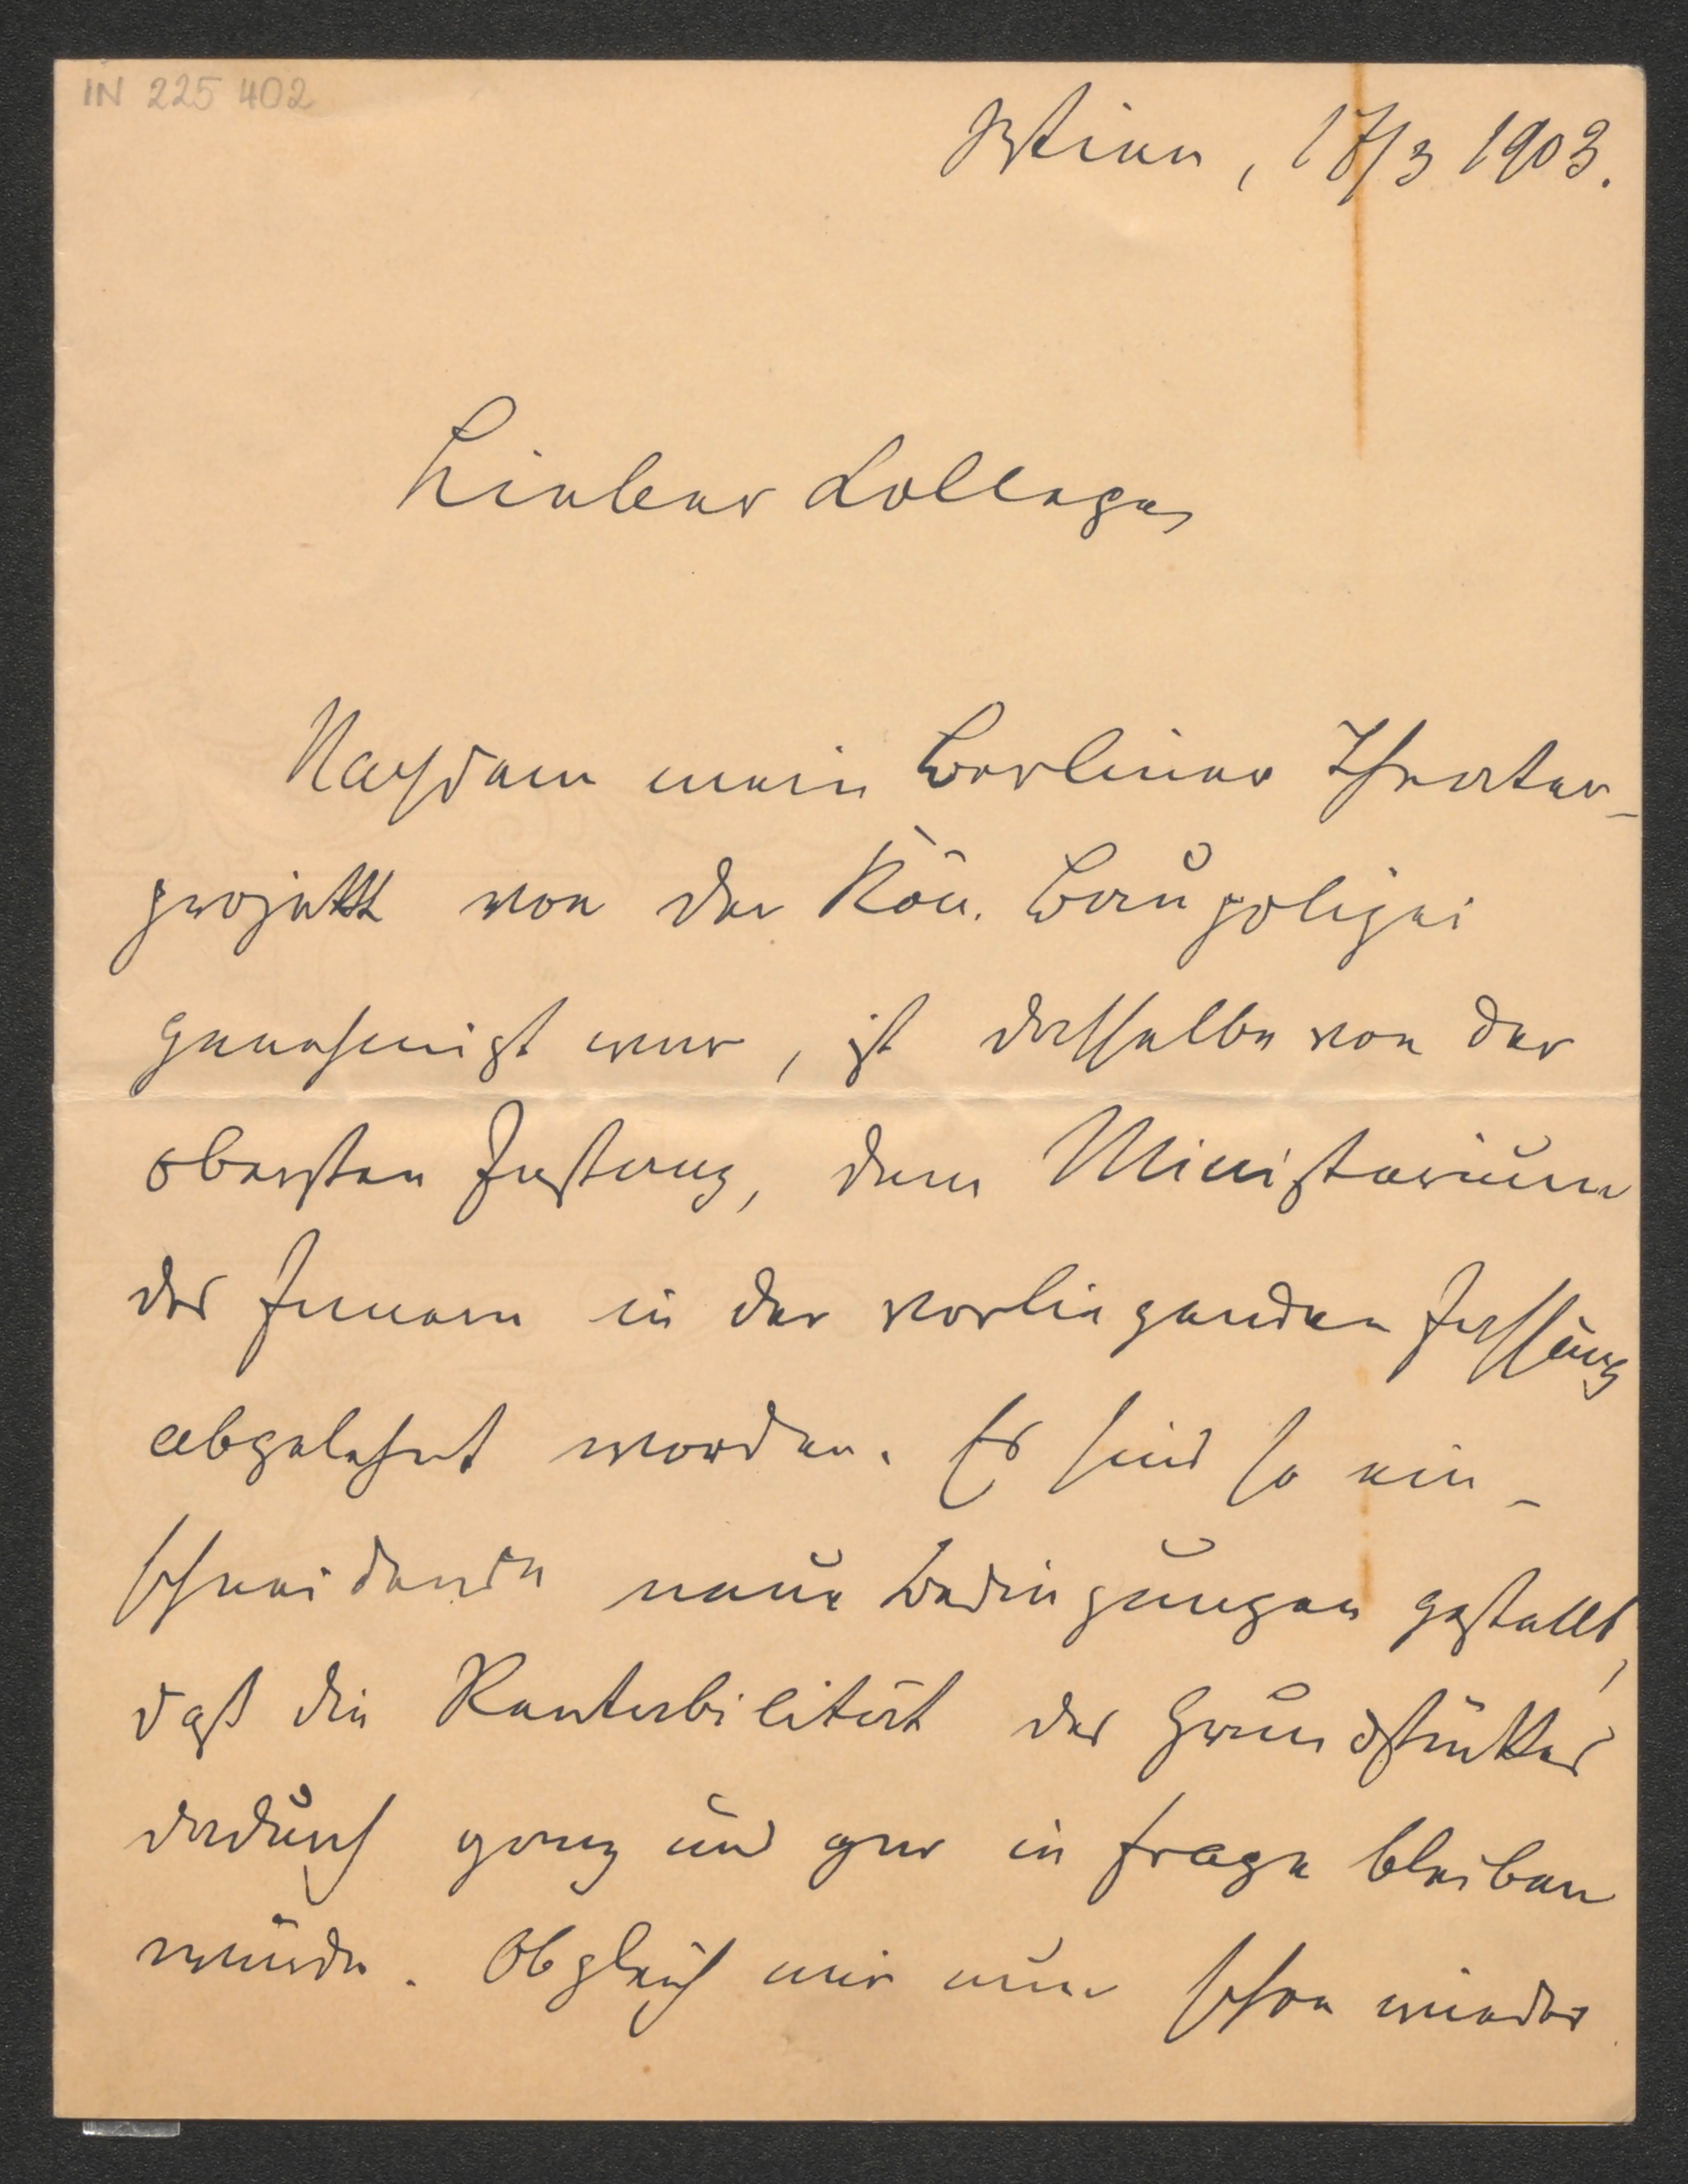 IN 225 402
Wien, 17/3 1903.
Lieber Kollege,
Nachdem mein Berliner Theater-
projekt von der Kön. Baupolizei
genehmigt war, ist dasselbe von der
obersten Instanz, dem Ministerium
des Innern in der vorliegenden Fassung
abgelehnt worden. Es sind so ein-
schneidende neue Bedingungen gestellt,
daß die Rentabilität des Grundstückes
dadurch ganz und gar in Frage bleiben
würde. Obgleich mir nun schon wieder